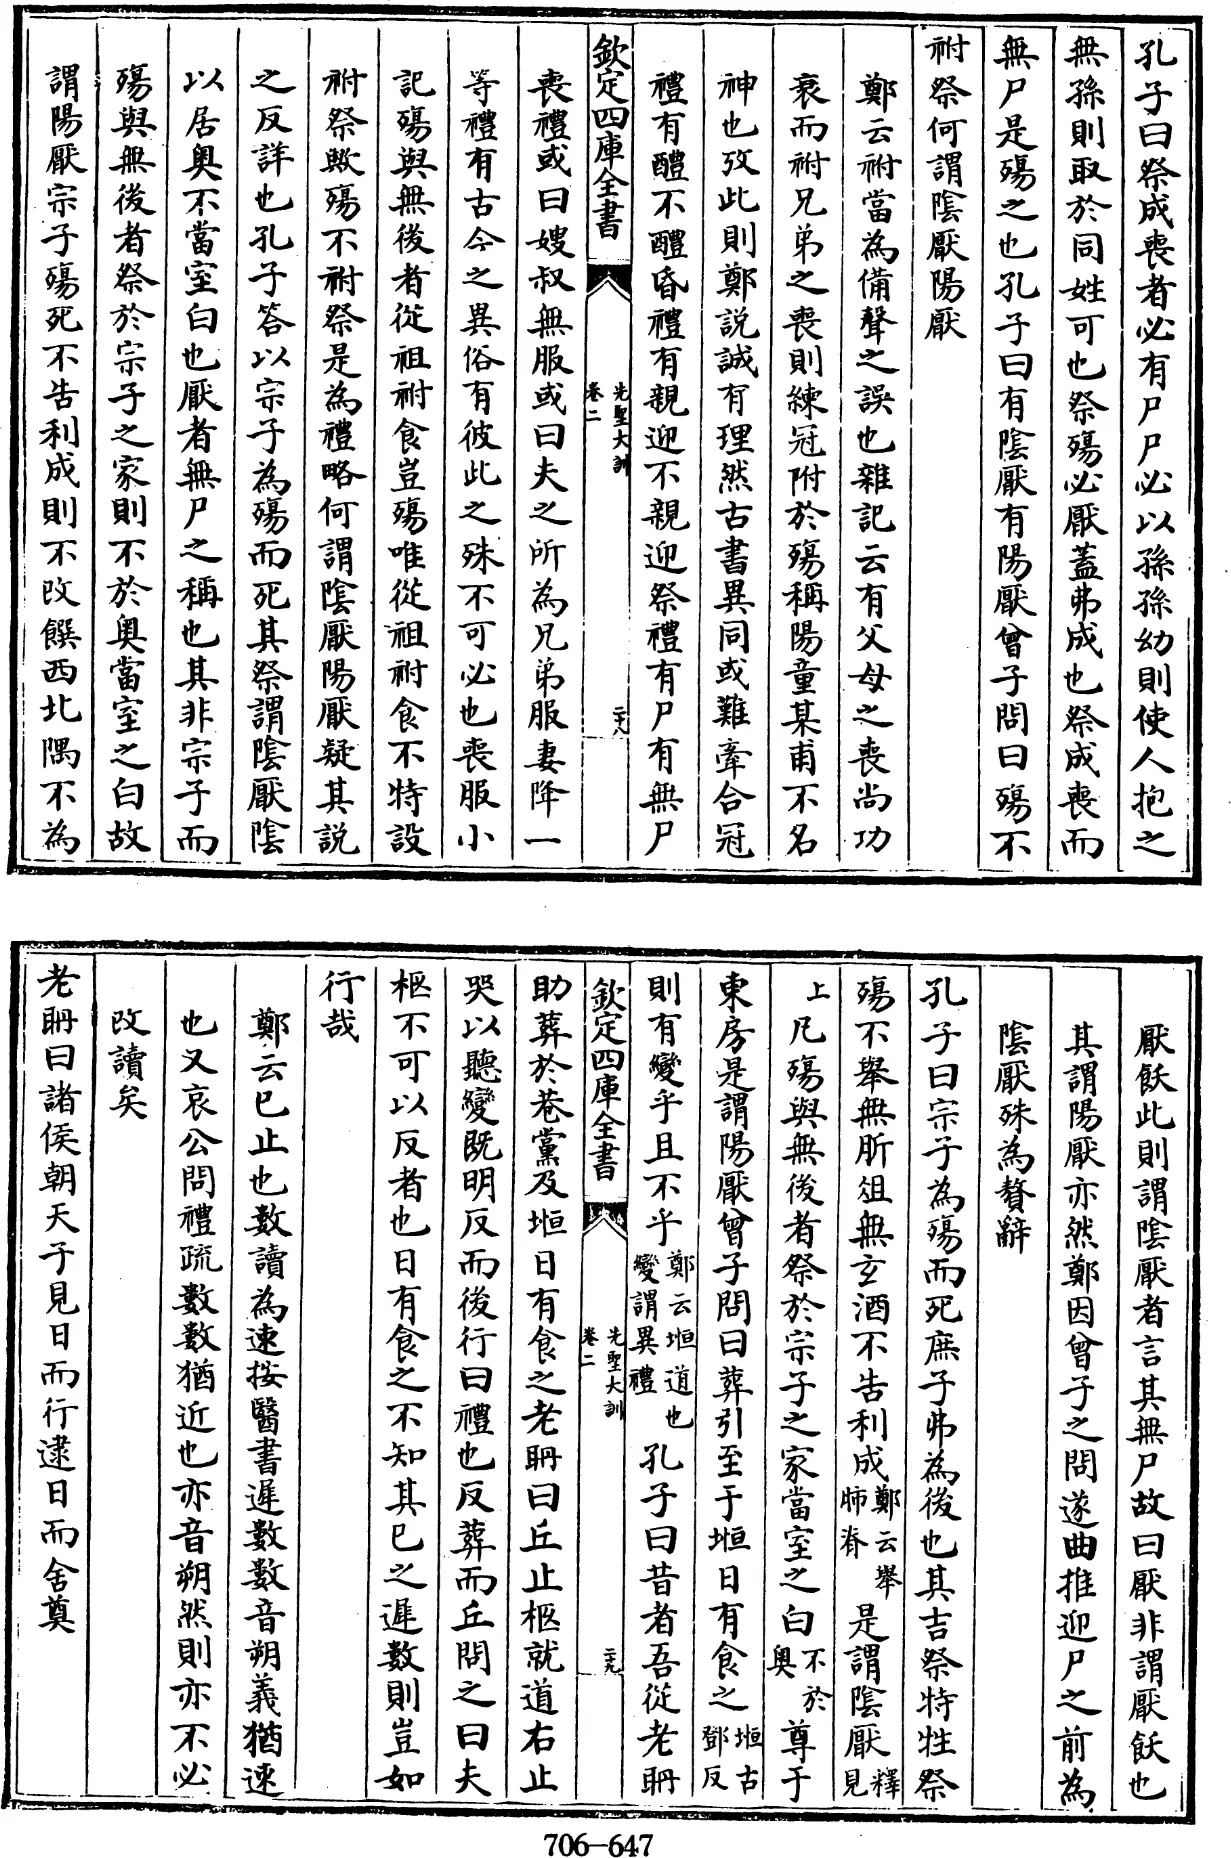 孔子曰祭成喪者必有尸尸必以孫孫幼則使人抱之
無孫則取於同姓可也祭殤必厭蓋弗成也祭成喪而
無尸是殤之也孔子曰有隂厭有陽厭曾子問曰殤不
祔祭何謂隂厭陽厭
鄭云祔當為備聲之誤也雜記云有父母之喪尚功
衰而祔兄弟之喪則練冠附於殤稱陽童某甫不名
神也攷此則鄭説誠有理然古書異同或難牽合冠
禮有醴不醴昏禮有親迎不親迎祭禮有尸有無尸
欽定四庫全書
先聖大訓
卷二
二十八
喪禮或曰嫂叔無服或曰夫之所為兄弟服妻降一
等禮有古今之異俗有彼此之殊不可必也喪服小
記殤與無後者從祖祔食豈殤唯從祖祔食不特設
祔祭歟殤不祔祭是為禮略何謂隂厭陽厭疑其説
之反詳也孔子答以宗子為殤而死其祭謂隂厭隂
以居奥不當室白也厭者無尸之稱也其非宗子而
殤與無後者祭於宗子之家則不於奥當室之白故
謂陽厭宗子殤死不告利成則不改饌西北隅不為
厭飫此則謂隂厭者言其無尸故曰厭非謂厭飫也
其謂陽厭亦然鄭因曾子之問遂曲推迎尸之前為
隂厭殊為贅辭
孔子曰宗子為殤而死庶子弗為後也其吉祭特牲祭
殤不舉無肵俎無玄酒不告利成鄭云舉肺脊是謂隂厭釋見
上凡殤與無後者祭於宗子之家當室之白不於奥尊于
東房是謂陽厭曾子問曰葬引至于堩日有食之堩古鄧反
則有變乎且不乎鄭云堩道也變謂異禮孔子曰昔者吾從老聃
欽定四庫全書
先聖大訓
卷二
二十九
助葬於巷黨及堩日有食之老聃曰丘止柩就道右止
哭以聽變既明反而後行曰禮也反葬而丘問之曰夫
柩不可以反者也日有食之不知其已之遲數則豈如
行哉
鄭云已止也數讀為速按醫書遲數數音朔義猶速
也又哀公問禮疏數數猶近也亦音朔然則亦不必
改讀矣
老聃曰諸侯朝天子見日而行逮日而舍奠
706—647